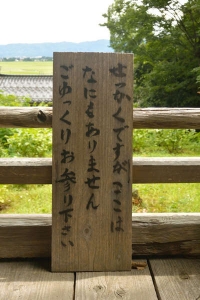 せっかくですがここは
なにもありません
ごゆっくりお参り下さい